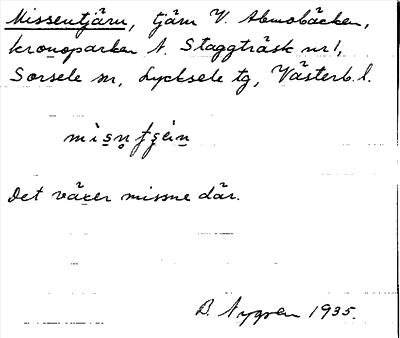 Missentjärn, tjärn V. Abmobäcken,
kronoparken N. Staggträsk nr 1,
Sorsele sn, Lycksele tg, Västerb. l.
Det växer missne där.
B. Nygren 1935.